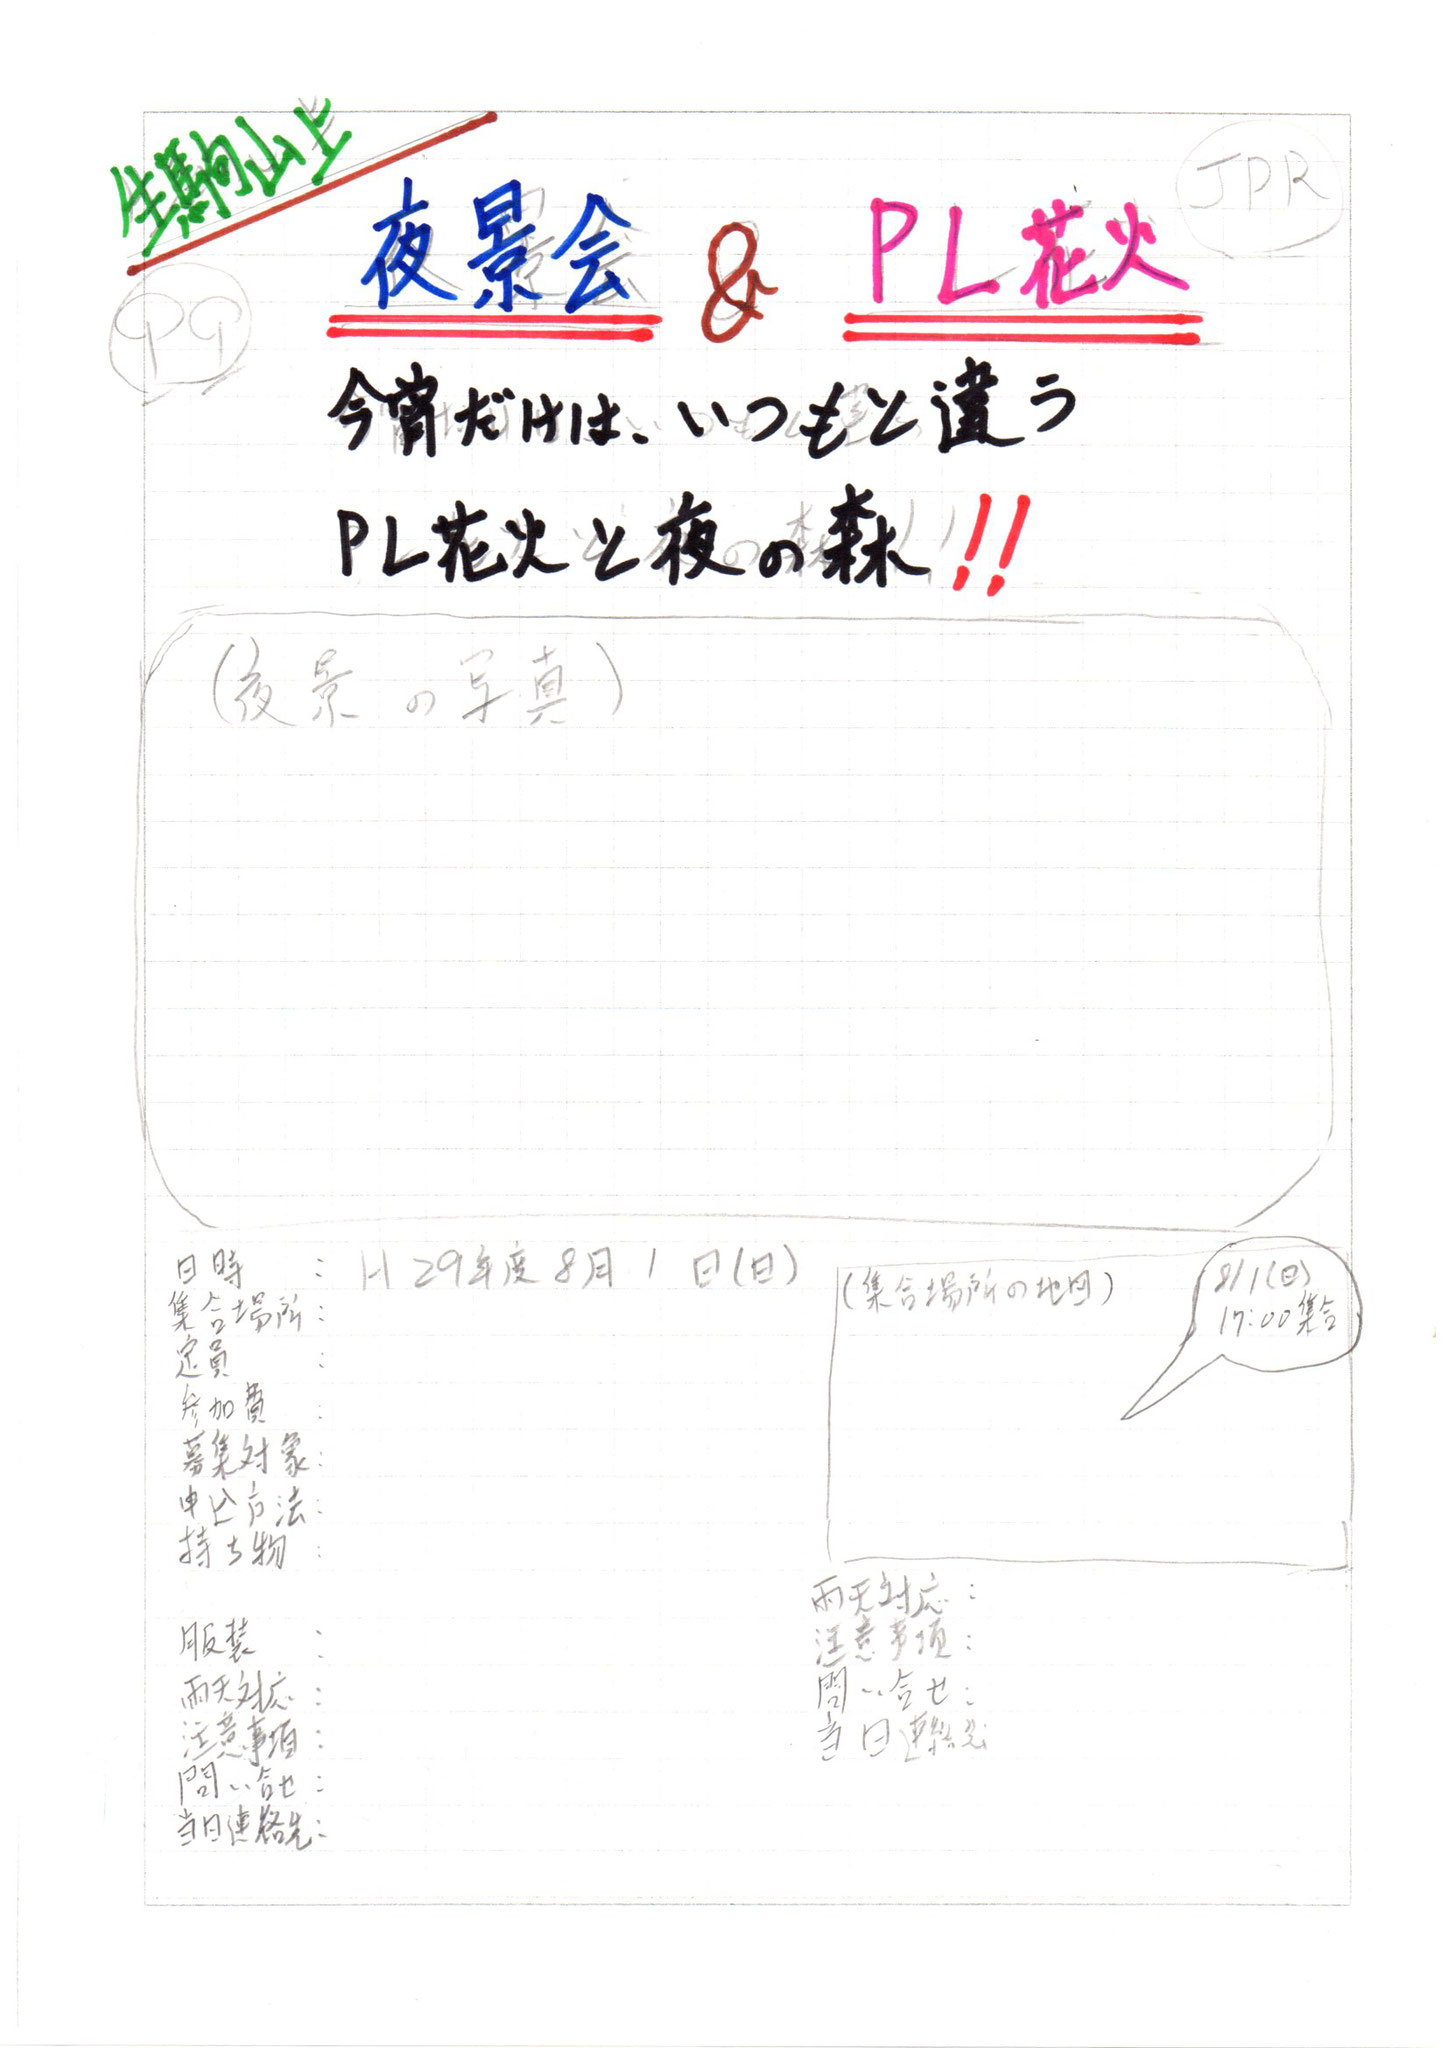 生駒山上
JPR
夜景会 & PL花火
今宵だけは、いつもと違う
PL花火と夜の森!!
(夜景の写真)
日時 : H29年度8月1日(日)
集合場所:
定員 :
参加費 :
募集対象:
申込方法:
持ち物 :
服装 :
雨天対応:
注意事項:
問い合せ:
当日連絡先:
(集合場所の地図)
8/1(日)
17:00集合
雨天対応:
注意事項:
問い合せ:
当日連絡先